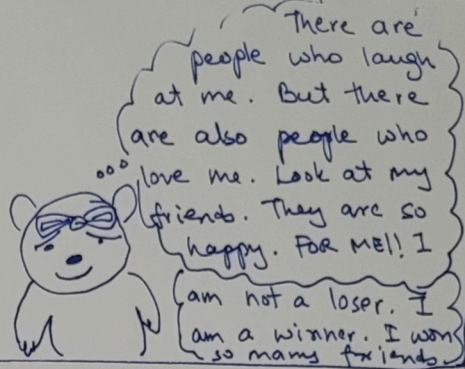 There are
people who laugh
at me. But there
are also people who
love me. Look at my
friends. They are so
happy. FOR ME!! I
am not a loser. I
am a winner. I won
so many friends.